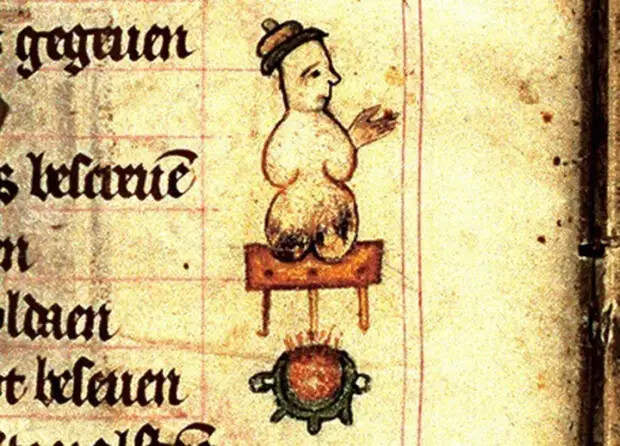 gegeuen
beſcreuē
en
oldaen
beſeuen